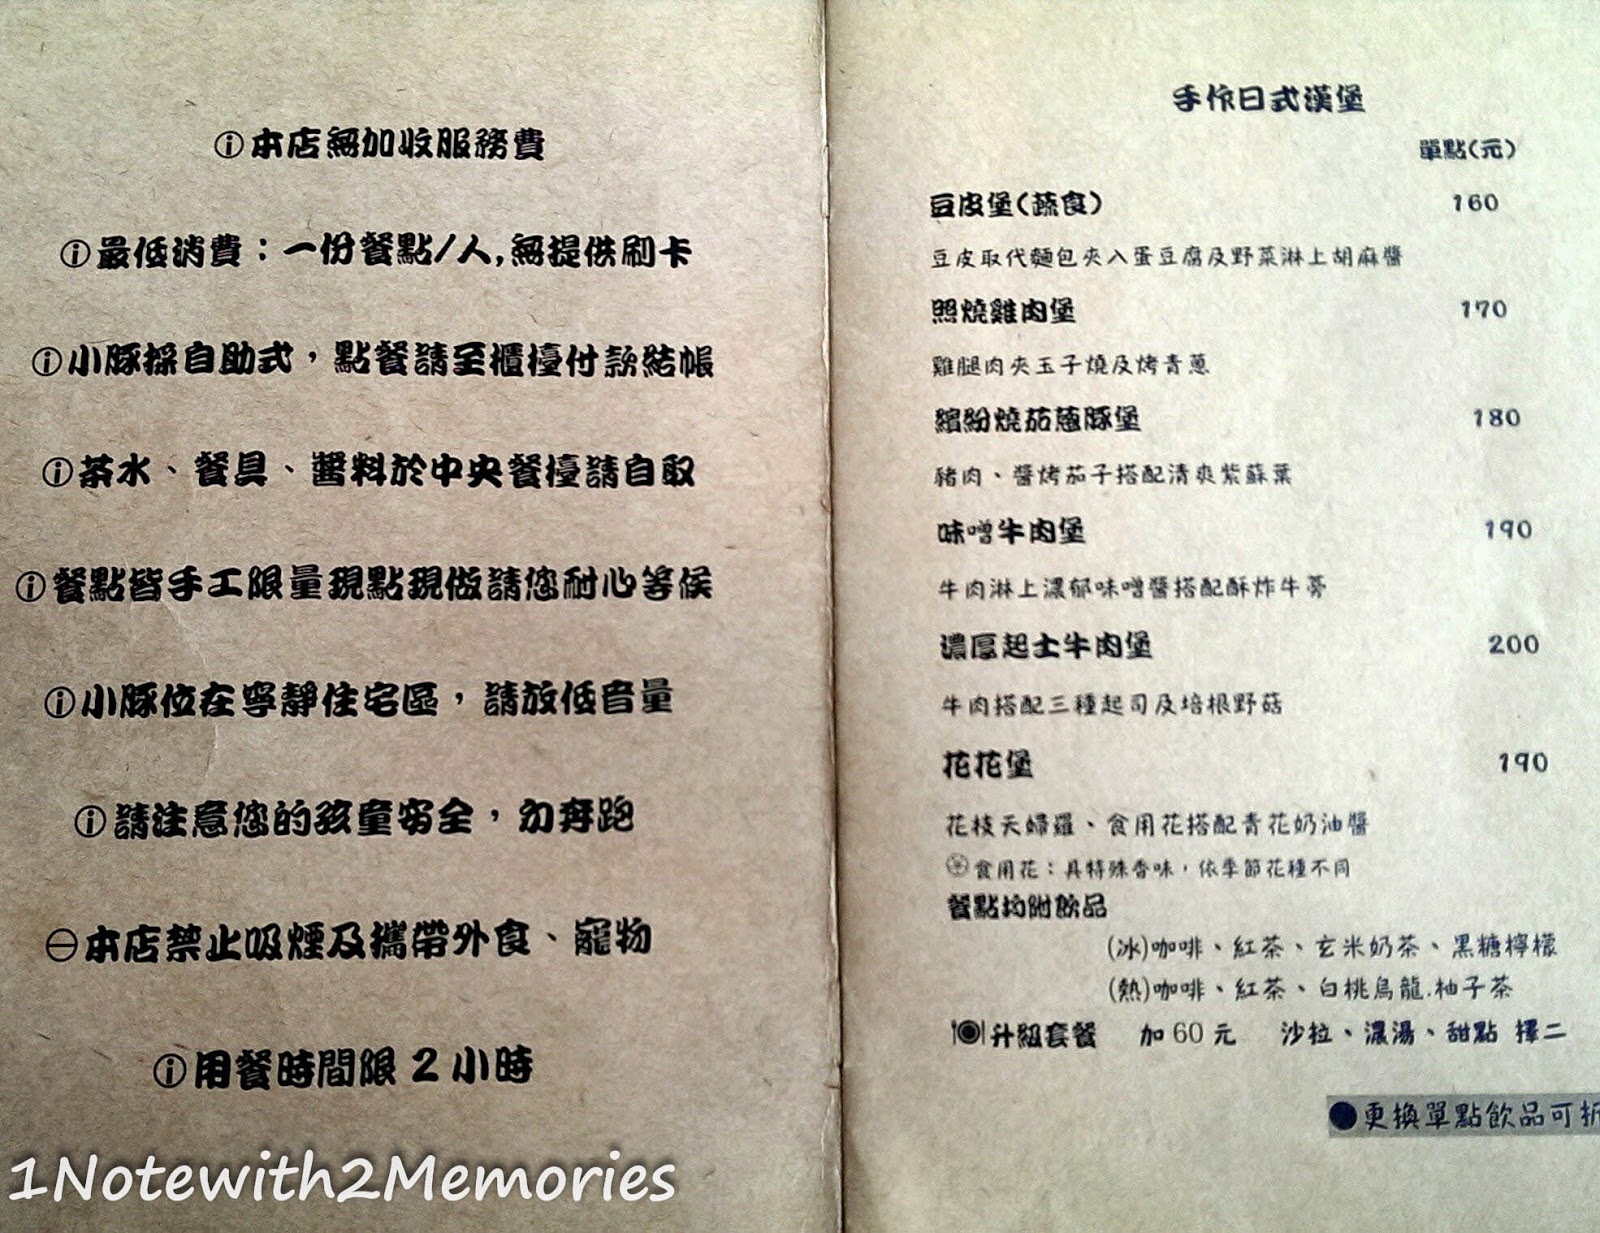 ⓘ本店無加收服務費
ⓘ最低消費：一份餐點/人,無提供刷卡
ⓘ小豚採自助式，點餐請至櫃檯付款結帳
ⓘ茶水、餐具、醬料於中央餐檯請自取
ⓘ餐點皆手工限量現點現做請您耐心等侯
ⓘ小豚位在寧靜住宅區，請放低音量
ⓘ請注意您的孩童安全，勿奔跑
⊖本店禁止吸煙及攜帶外食、寵物
ⓘ用餐時間限 2 小時
1Notewith2Memories
手作日式漢堡
單點(元)
豆皮堡(蔬食) 160
豆皮取代麵包夾入蛋豆腐及野菜淋上胡麻醬
照燒雞肉堡 170
雞腿肉夾玉子燒及烤青蔥
繽紛燒茄蔥豚堡 180
豬肉、醬烤茄子搭配清爽紫蘇葉
味噌牛肉堡 190
牛肉淋上濃郁味噌醬搭配酥炸牛蒡
濃厚起士牛肉堡 200
牛肉搭配三種起司及培根野菇
花花堡 190
花枝天婦羅、食用花搭配青花奶油醬
食用花：具特殊香味，依季節花種不同
餐點均附飲品
(冰)咖啡、紅茶、玄米奶茶、黑糖檸檬
(熱)咖啡、紅茶、白桃烏龍.柚子茶
升級套餐 加 60 元 沙拉、濃湯、甜點 擇二
●更換單點飲品可折